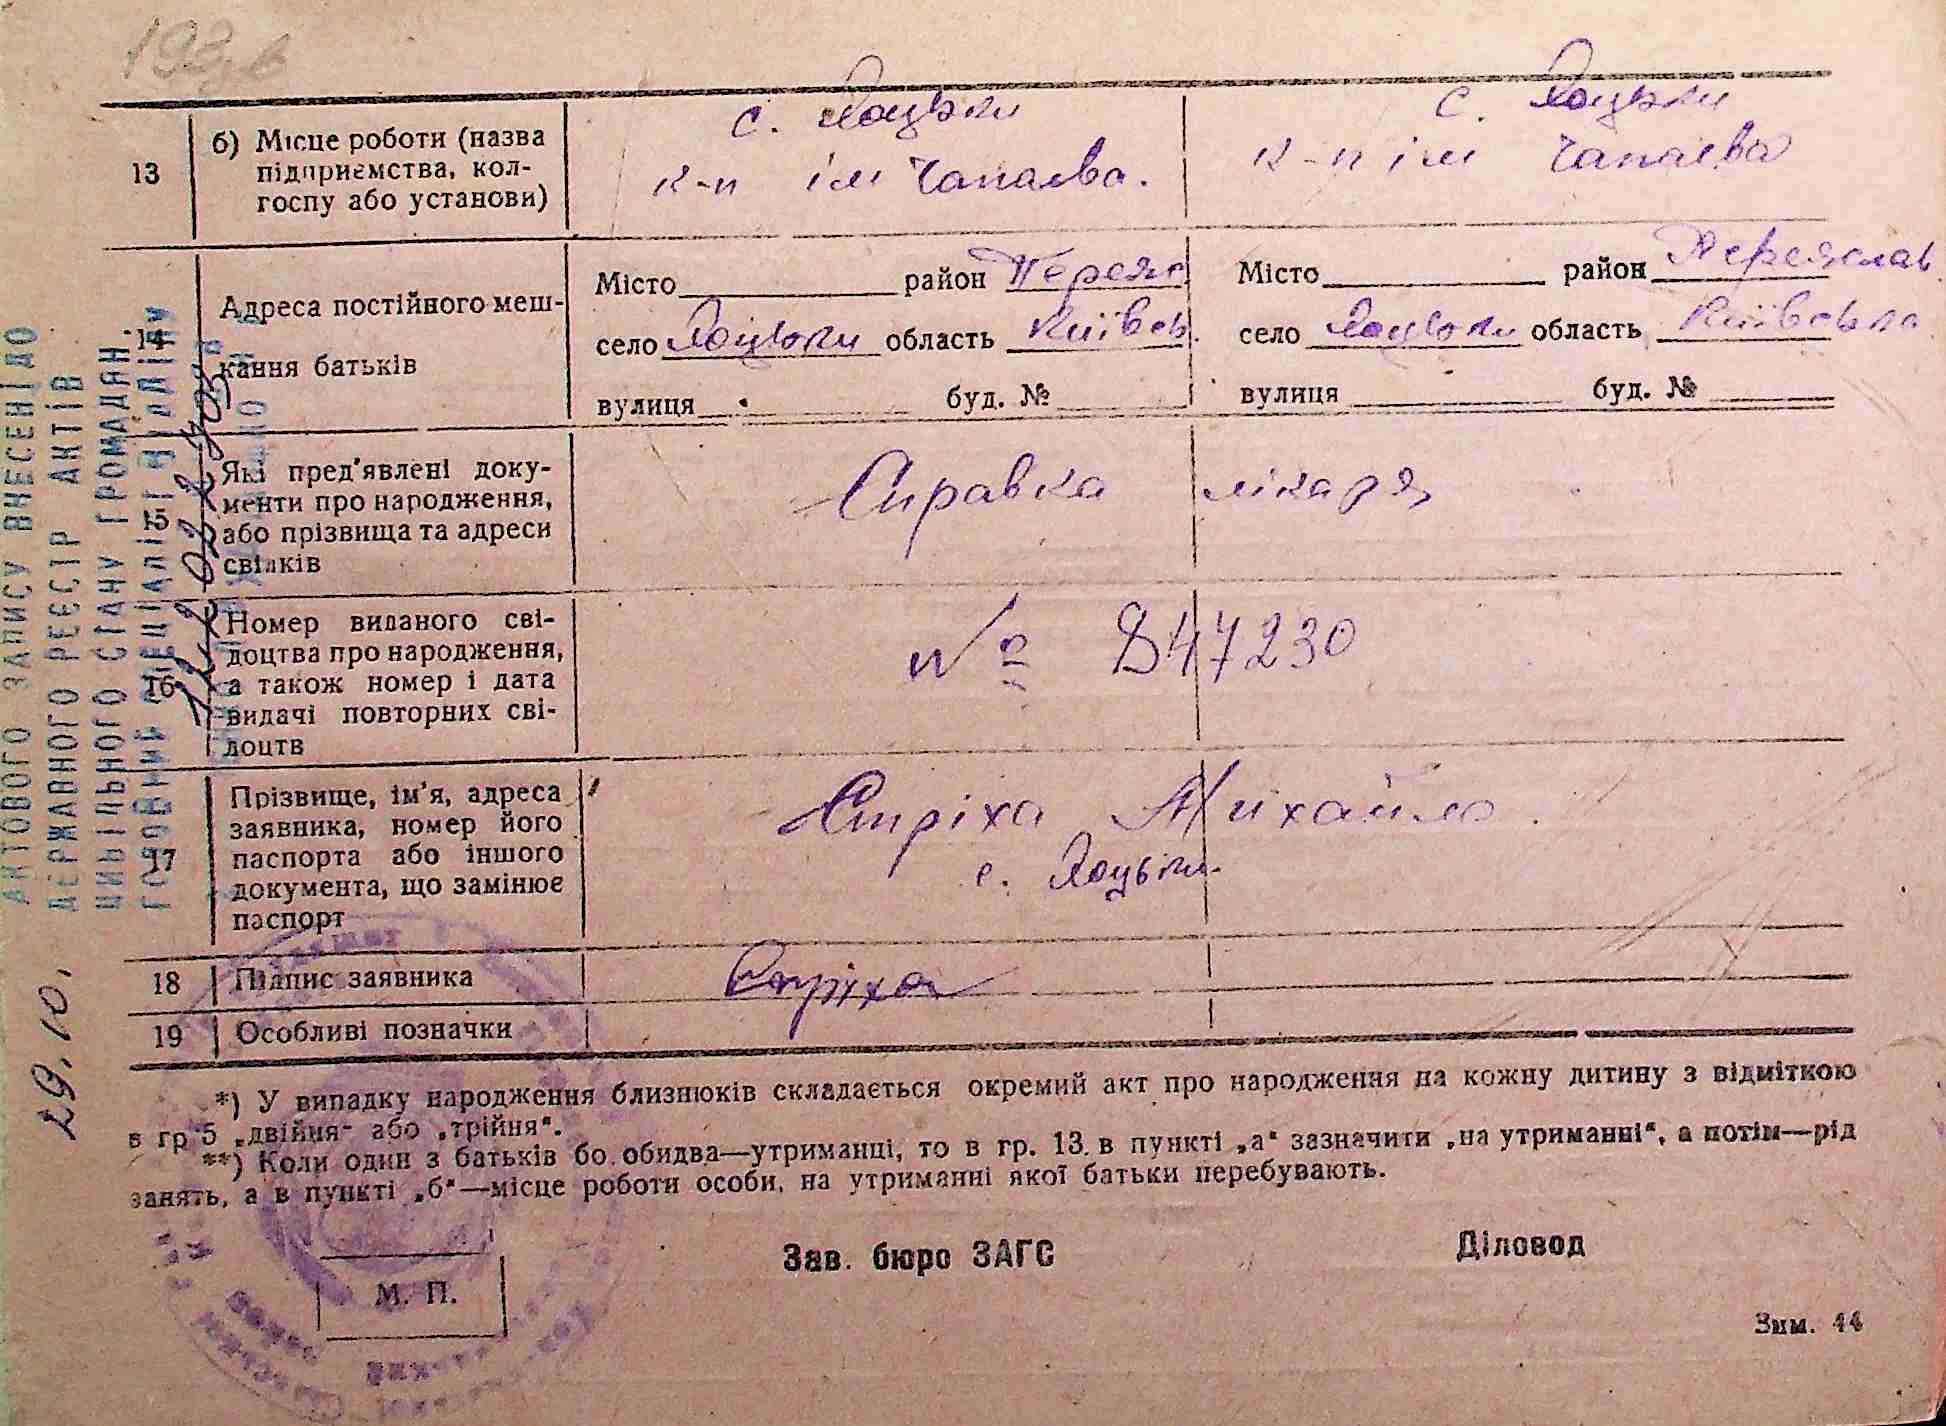 13
б) Місце роботи (назва
підприємства, кол-
госпу або установи)
с. Яоцьки
к-п ім Чапаєва.
с. Яоцьки
к-п ім Чапаєва
14
Адреса постійного меш-
кання батьків
Місто район Переяс
село Яоцьки область Київсь.
вулиця буд. №
Місто район Переяслав
село Яоцьки область Київська
вулиця буд. №
15
Які пред'явлені доку-
менти про народження,
або прізвища та адреси
свідків
Справка лікаря
16
Номер виданого сві-
доцтва про народження,
а також номер і дата
видачі повторних сві-
доцтв
№ 847230
17
Прізвище, ім'я, адреса
заявника, номер його
паспорта або іншого
документа, що замінює
паспорт
Стріха Михайло.
с. Яоцьки.
18
Підпис заявника
Стріха
19
Особливі позначки
*) У випадку народження близнюків складається окремий акт про народження на кожну дитину з відміткою
в гр 5 „двійня" або „трійня".
**) Коли один з батьків бо обидва—утриманці, то в гр. 13 в пункті „а" зазначити „на утриманні", а потім—рід
занять, а в пункті „б"—місце роботи особи, на утриманні якої батьки перебувають.
Зав. бюро ЗАГС
Діловод
М. П.
Зим. 44
АКТОВОГО ЗАПИСУ ВНЕСЕНІДО
ДЕРЖАВНОГО РЕЄСТР АКТІВ
ЦИВІЛЬНОГО СТАНУ ГРОМАДЯН.
29.10.